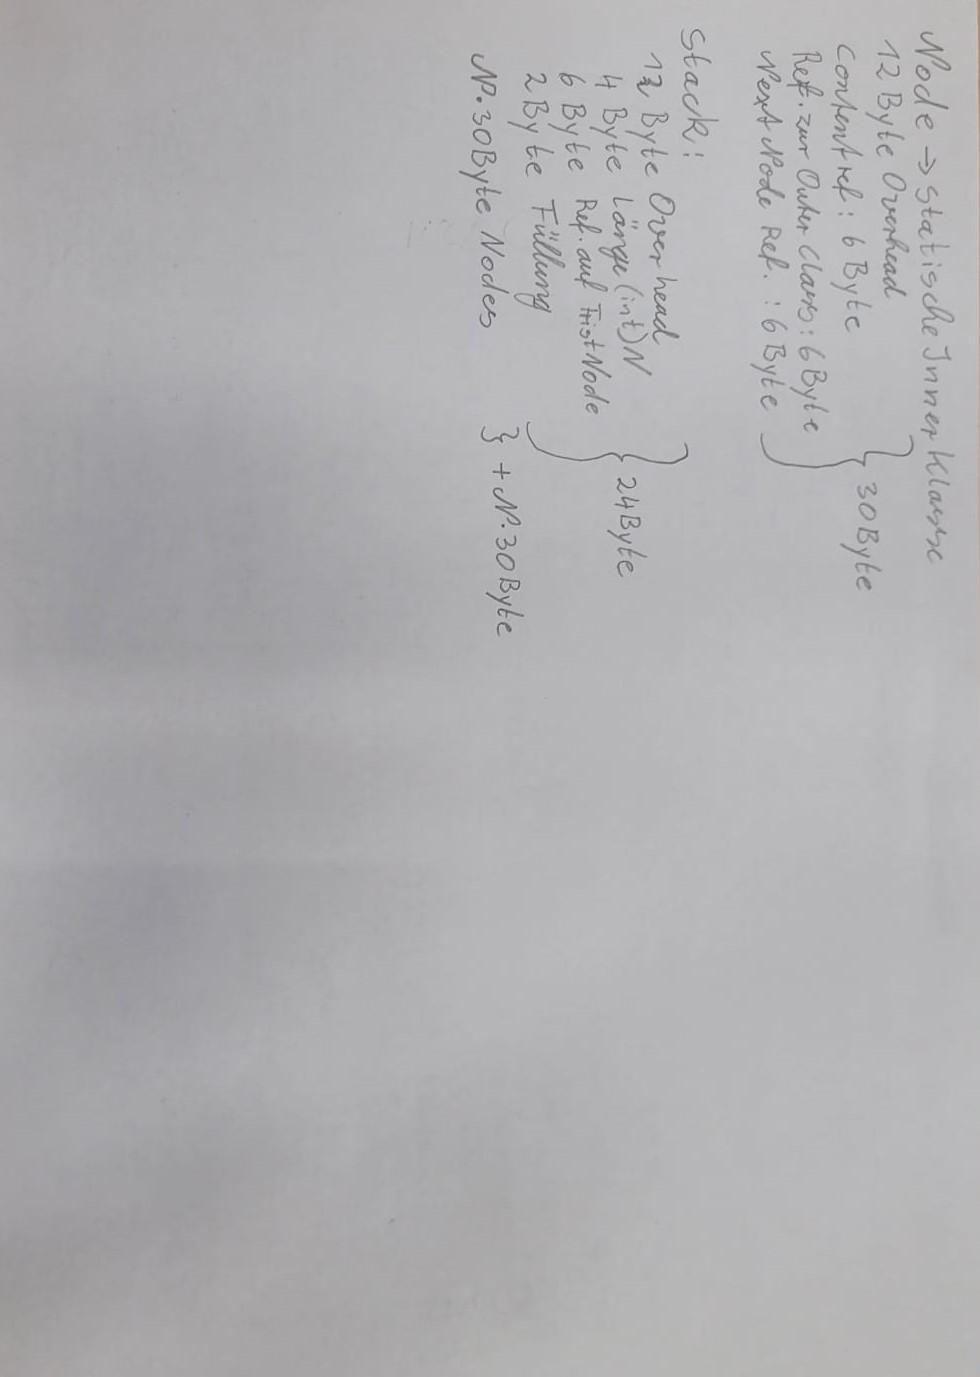 Node → statische Inner Klasse
12 Byte Overhead
Content ref: 6 Byte
Ref. zur Outer Class: 6 Byte
Next Node Ref. : 6 Byte
} 30 Byte
Stack:
12 Byte Overhead
4 Byte Länge (int) N
6 Byte Ref. auf FristNode
2 Byte Füllung
} 24 Byte
N·30 Byte Nodes } + N·30 Byte